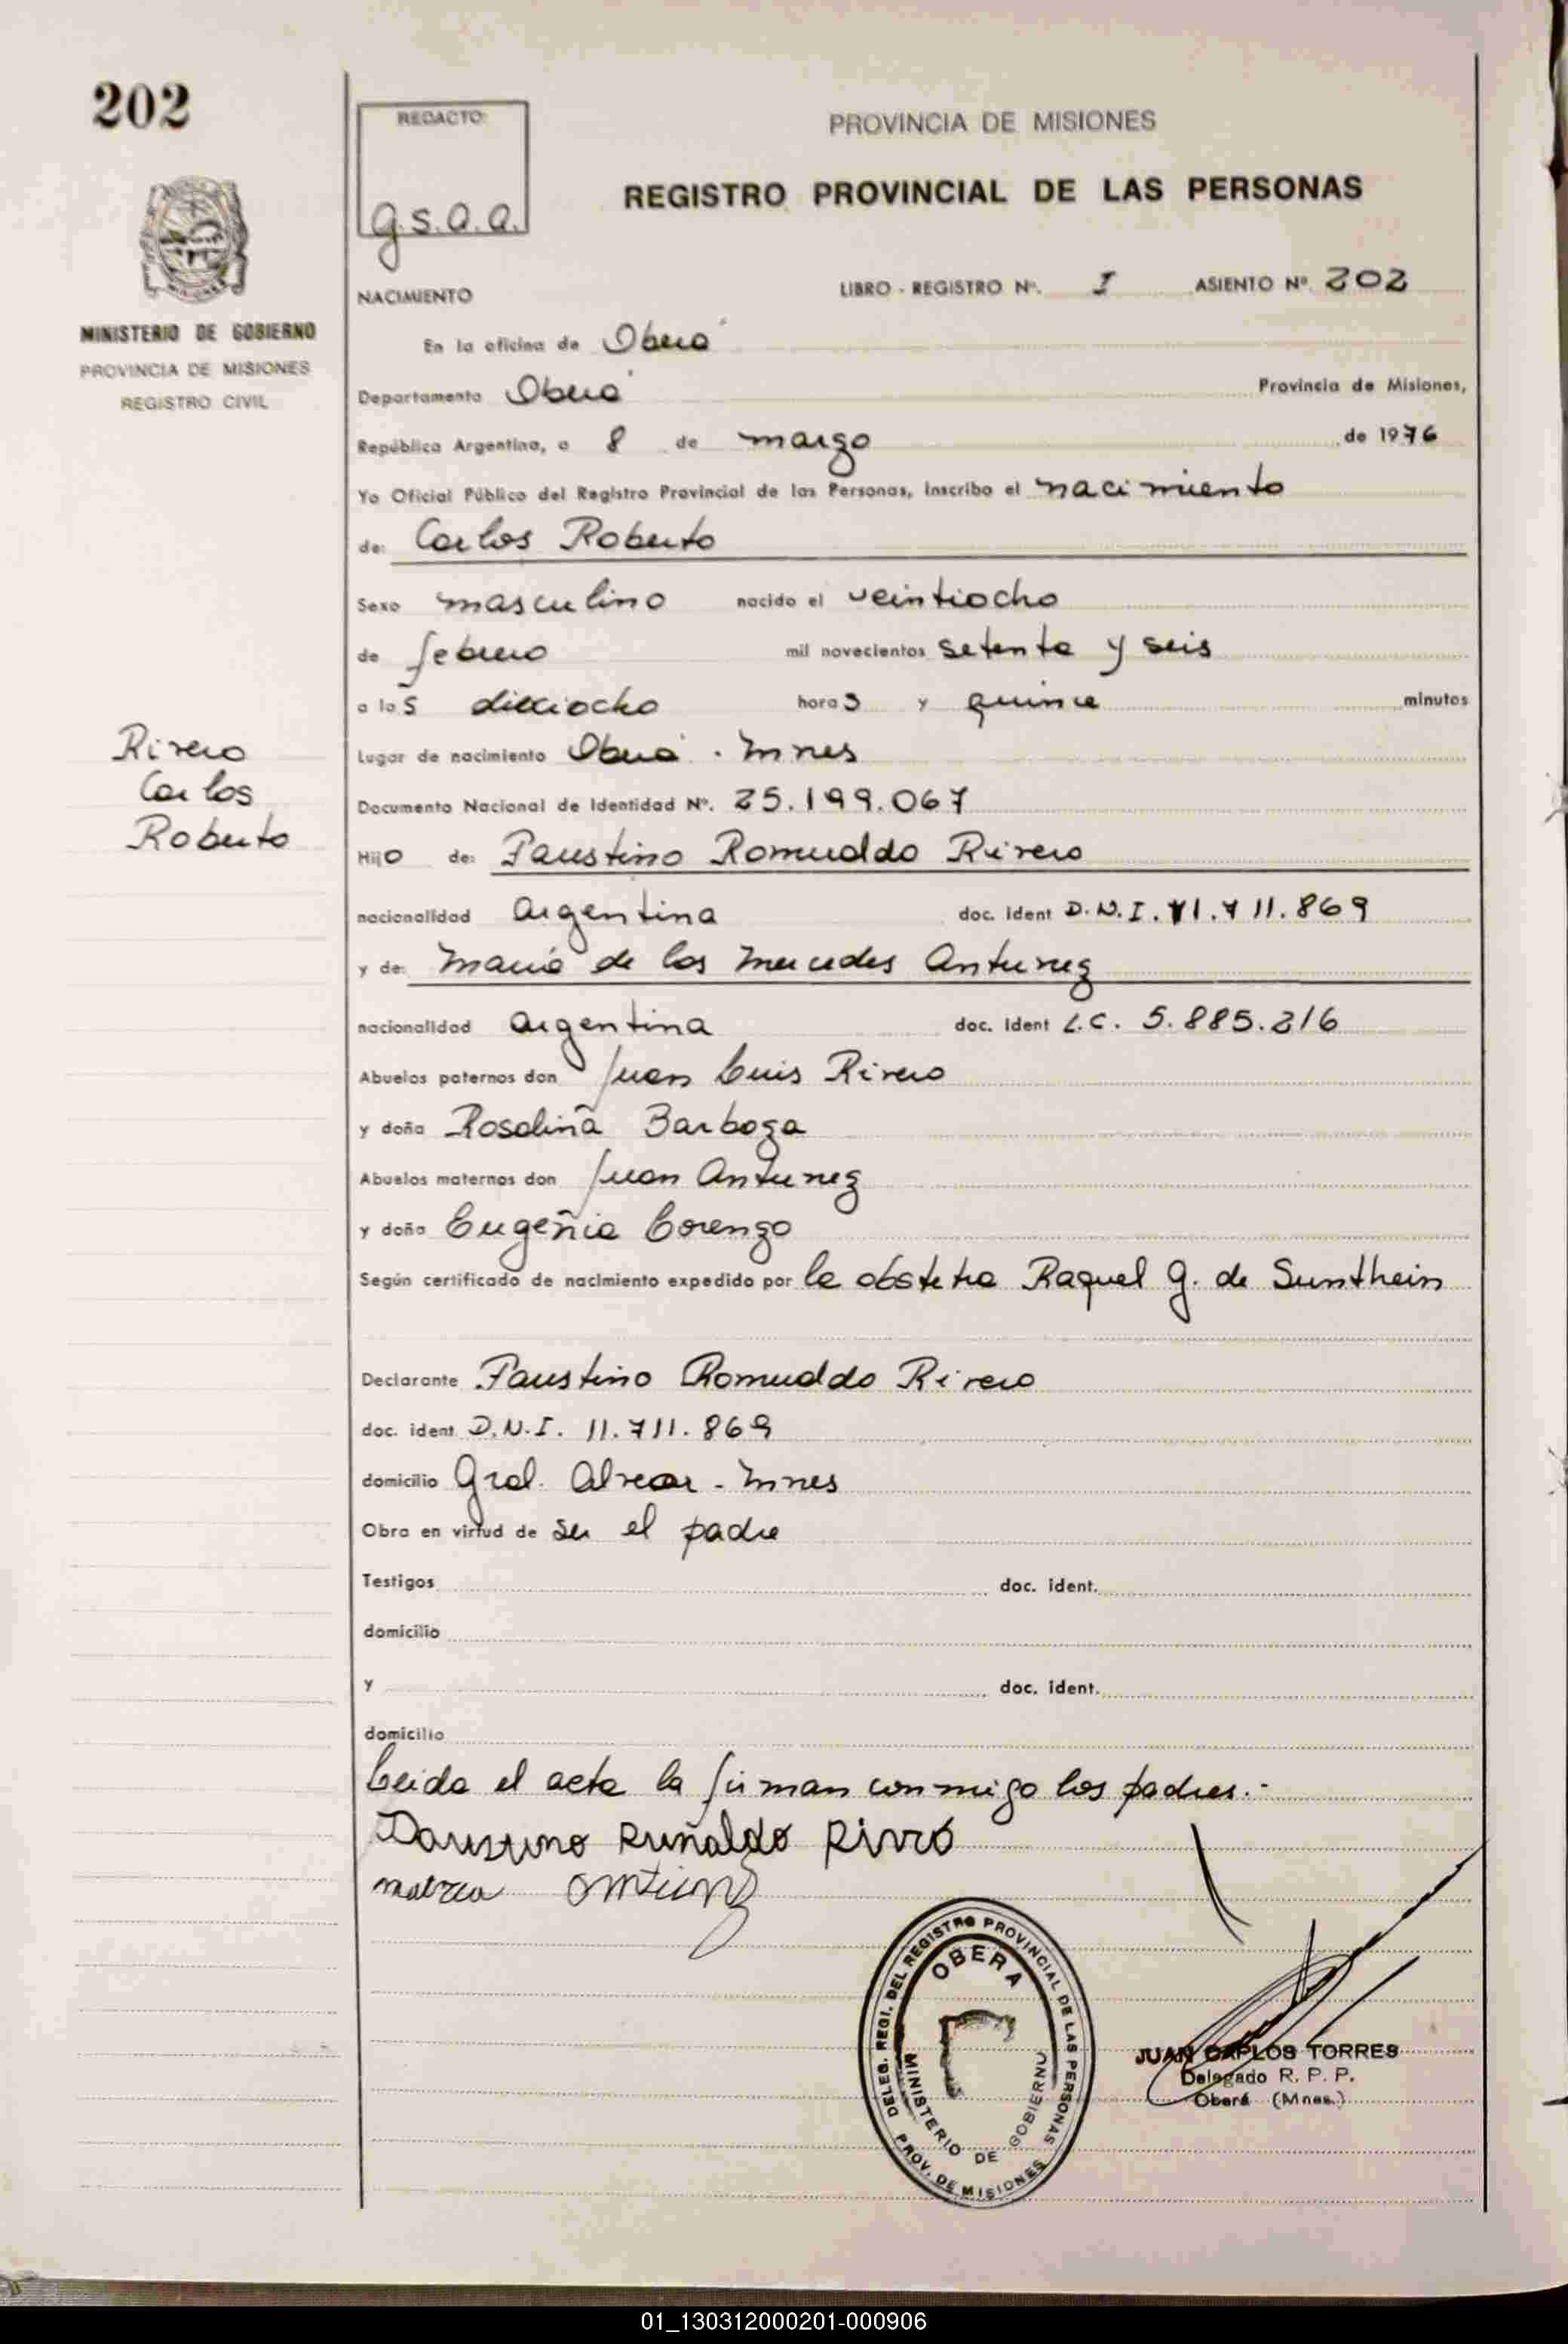 202
MINISTERIO DE GOBIERNO
PROVINCIA DE MISIONES
REGISTRO CIVIL
Rivero
Carlos
Roberto
REDACTO:
g.s.a.a.
PROVINCIA DE MISIONES
REGISTRO PROVINCIAL DE LAS PERSONAS
NACIMIENTO LIBRO - REGISTRO Nº. I ASIENTO Nº 202
En la oficina de Oberá
Departamento Oberá Provincia de Misiones,
República Argentina, a 8 de marzo de 1976
Yo Oficial Público del Registro Provincial de las Personas, inscribo el nacimiento
de: Carlos Roberto
Sexo masculino nacido el veintiocho
de febrero mil novecientos setenta y seis
a las dieciocho horas y quince minutos
Lugar de nacimiento Oberá - Mnes
Documento Nacional de Identidad Nº. 25.199.067
Hijo de: Faustino Romualdo Rivero
nacionalidad argentina doc. ident D.N.I. 11.711.869
y de: María de las Mercedes Antunez
nacionalidad argentina doc. ident L.C. 5.885.216
Abuelos paternos don Juan Luis Rivero
y doña Rosalina Barboza
Abuelos maternos don Juan Antunez
y doña Eugenia Lorenzo
Según certificado de nacimiento expedido por la obstetra Raquel G. de Sunthein
Declarante Faustino Romualdo Rivero
doc. ident. D.N.I. 11.711.869
domicilio Gral. Alvear - Mnes
Obra en virtud de ser el padre
Testigos doc. ident.
domicilio
y doc. ident.
domicilio
Leida el acta la firman conmigo los padres.-
Rivró
DELEG. REGI. DEL REGISTRO PROVINCIAL DE LAS PERSONAS
OBERA
MINISTERIO DE GOBIERNO
PROV. DE MISIONES
JUAN CARLOS TORRES
Delegado R. P. P.
Oberá (Mnes.)
01_130312000201-000906